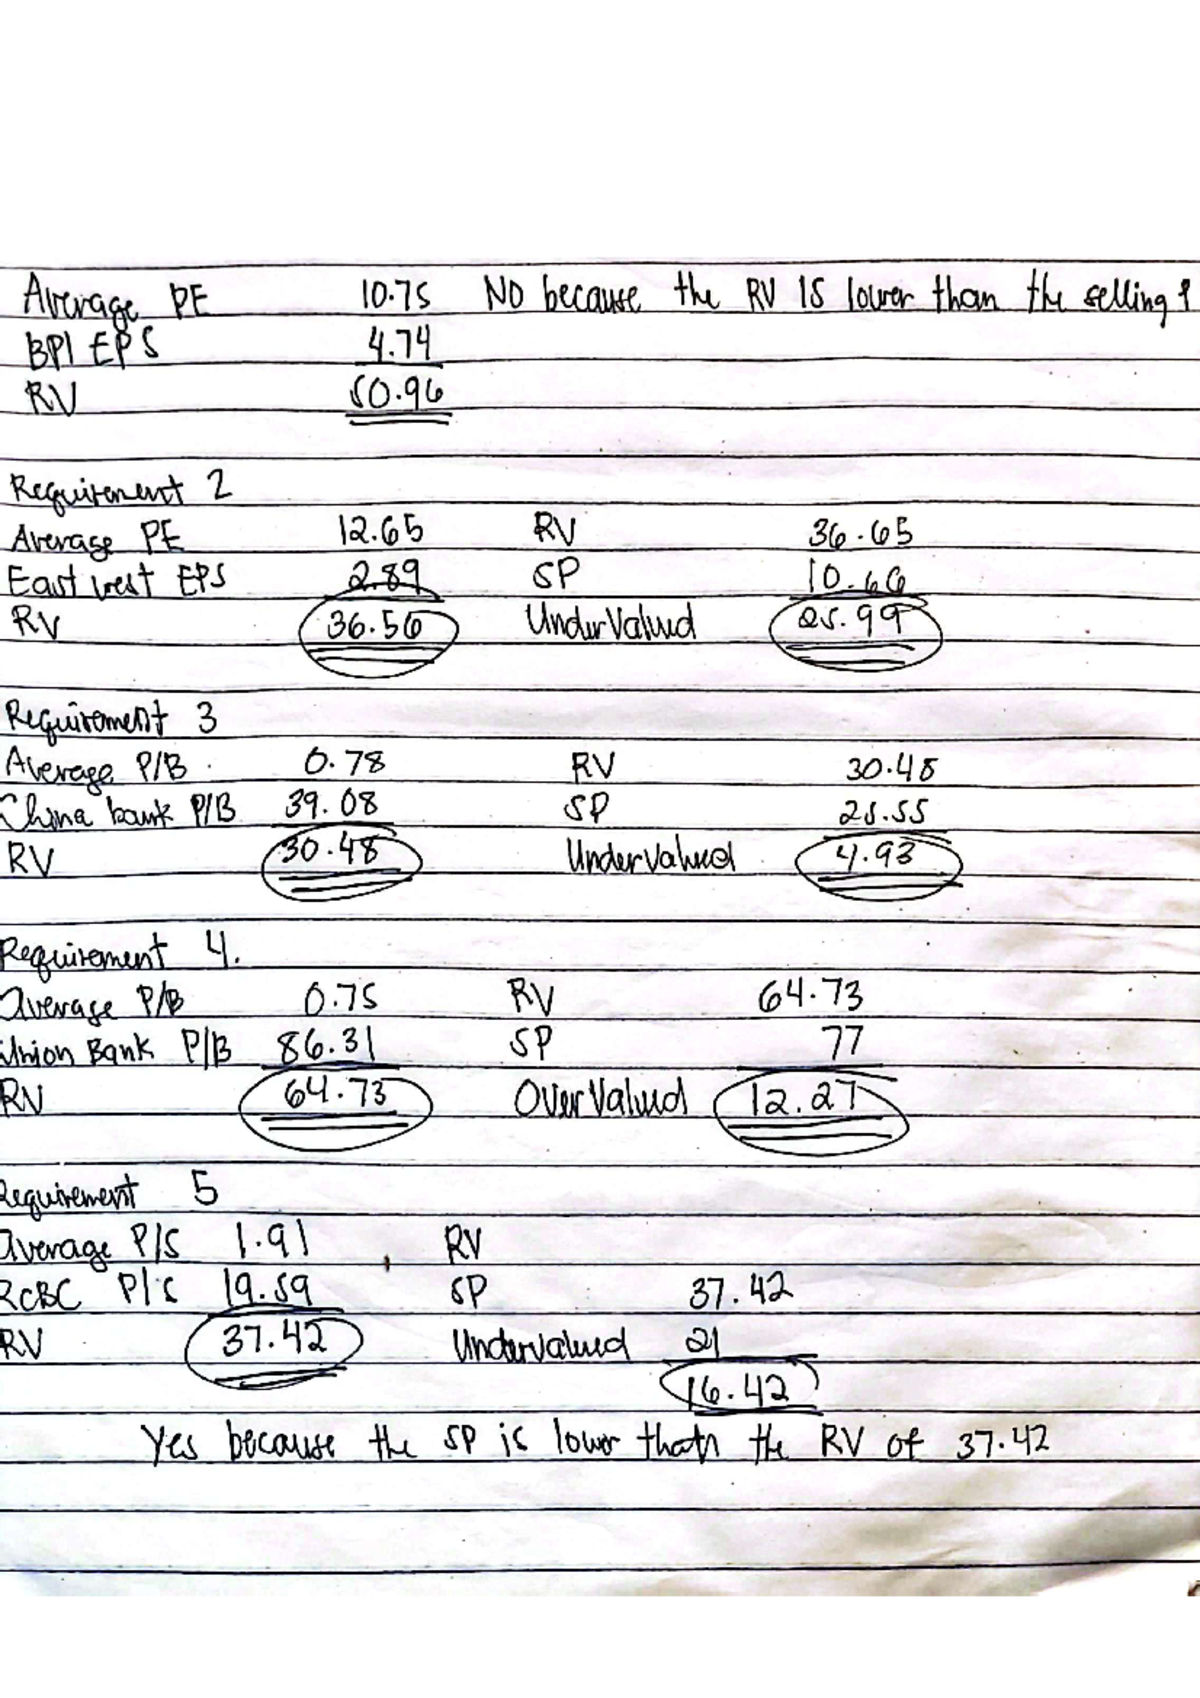 Average PE 10.75 NO because the RV IS lower than the selling
BPI EPS 4.74
RV 50.96
Requirement 2
Average PE 12.65 RV 36.65
East west EPS 2.89 SP 10.66
RV 36.56 UnderValued 25.99
Requirement 3
Average P/B 0.78 RV 30.48
China bank P/B 39.08 SP 25.55
RV 30.48 UnderValued 4.93
Requirement 4.
average P/B 0.75 RV 64.73
Union Bank P/B 86.31 SP 77
RV 64.73 OverValued 12.27
Requirement 5
average P/S 1.91 RV
RCBC P/S 19.59 SP 37.42
RV 37.42 Undervalued 21
16.42
Yes because the SP is lower than the RV of 37.42